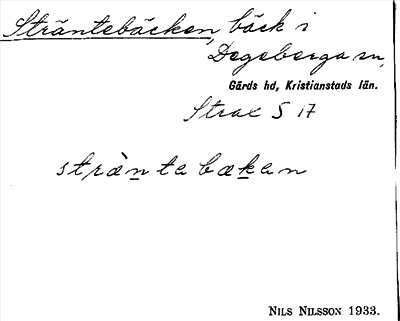 Sträntebäcken, bäck i
Degeberga sn,
Gärds hd, Kristianstads län.
Strax S 17
stràntabækan
NILS NILSSON 1933.